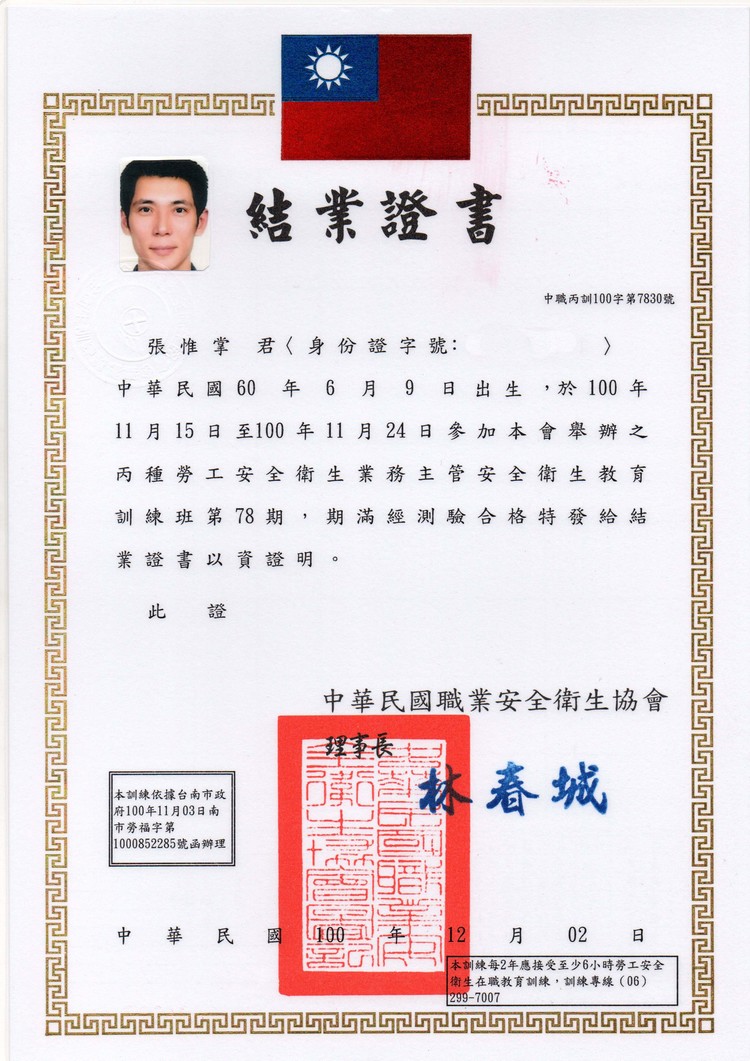 結業證書
中職丙訓100字第7830號
張惟掌 君〈身份證字號: 〉
中華民國60 年 6 月 9 日出生，於100年
11月15日至100年11月24日參加本會舉辦之
丙種勞工安全衛生業務主管安全衛生教育
訓練班第78期，期滿經測驗合格特發給結
業證書以資證明。
此 證
中華民國職業安全衛生協會
理事長
林春城
本訓練依據台南市政
府100年11月03日南
市勞福字第
1000852285號函辦理
中 華 民 國 100 年 12 月 02 日
本訓練每2年應接受至少6小時勞工安全
衛生在職教育訓練，訓練專線（06）
299-7007